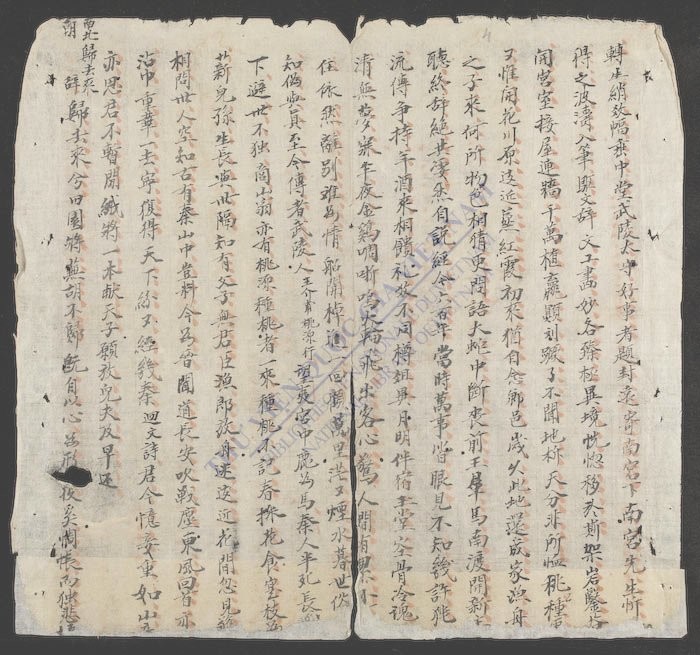 轉生綃数幅垂中堂武陵太守好事者題封遠寄南宮下南宮先生忻
得之波濤入筆驅文辞文工畫妙各臻極異境恍惚移於斯架岩鑿谷
開宮室接屋連牆千萬植嬴顛劉蹶了不聞地坼天分非所恤桃種處
々惟開花川原遠近蒸紅霞初來猶自念鄉邑歲久此地還成家漁舟
之子來何所物色相猜更問語大蛇中断喪前王羣馬南渡開新主
聽終辞絕共凄然自說經今六百年當時萬事皆眼見不知幾許猶
流傳争持牛酒來相饋礼数不同樽俎異月明伴宿玉堂空骨冷魂
清無夢寐半夜金鷄啁哳鳴火輪飛出客心驚人間有累不
住依然離別難為情船開棹進一回顧萬里茫々煙水暮世俗
知偽與真至今傳者武陵人 王介甫桃源行 望夷宮中鹿為馬秦人半死長城
下避世不独商山翁亦有桃源種桃者一來種桃不記春採花食实枝為
薪兒孫生長與世隔知有父子無君臣漁郎放舟迷遠近花間忽見
相問世人寧知古有秦山中豈料今為晉聞道長安吹戰塵東風回首亦
沾巾重華一去寧復得天下紛々經幾秦 迴文詩君今憶妾重如山妾
亦思君不暫閒織將一本献天子願放兒夫及早还
南北朝歸去來辞 歸去來兮田園將蕪胡不歸既自以心為形役奚惆悵而独悲